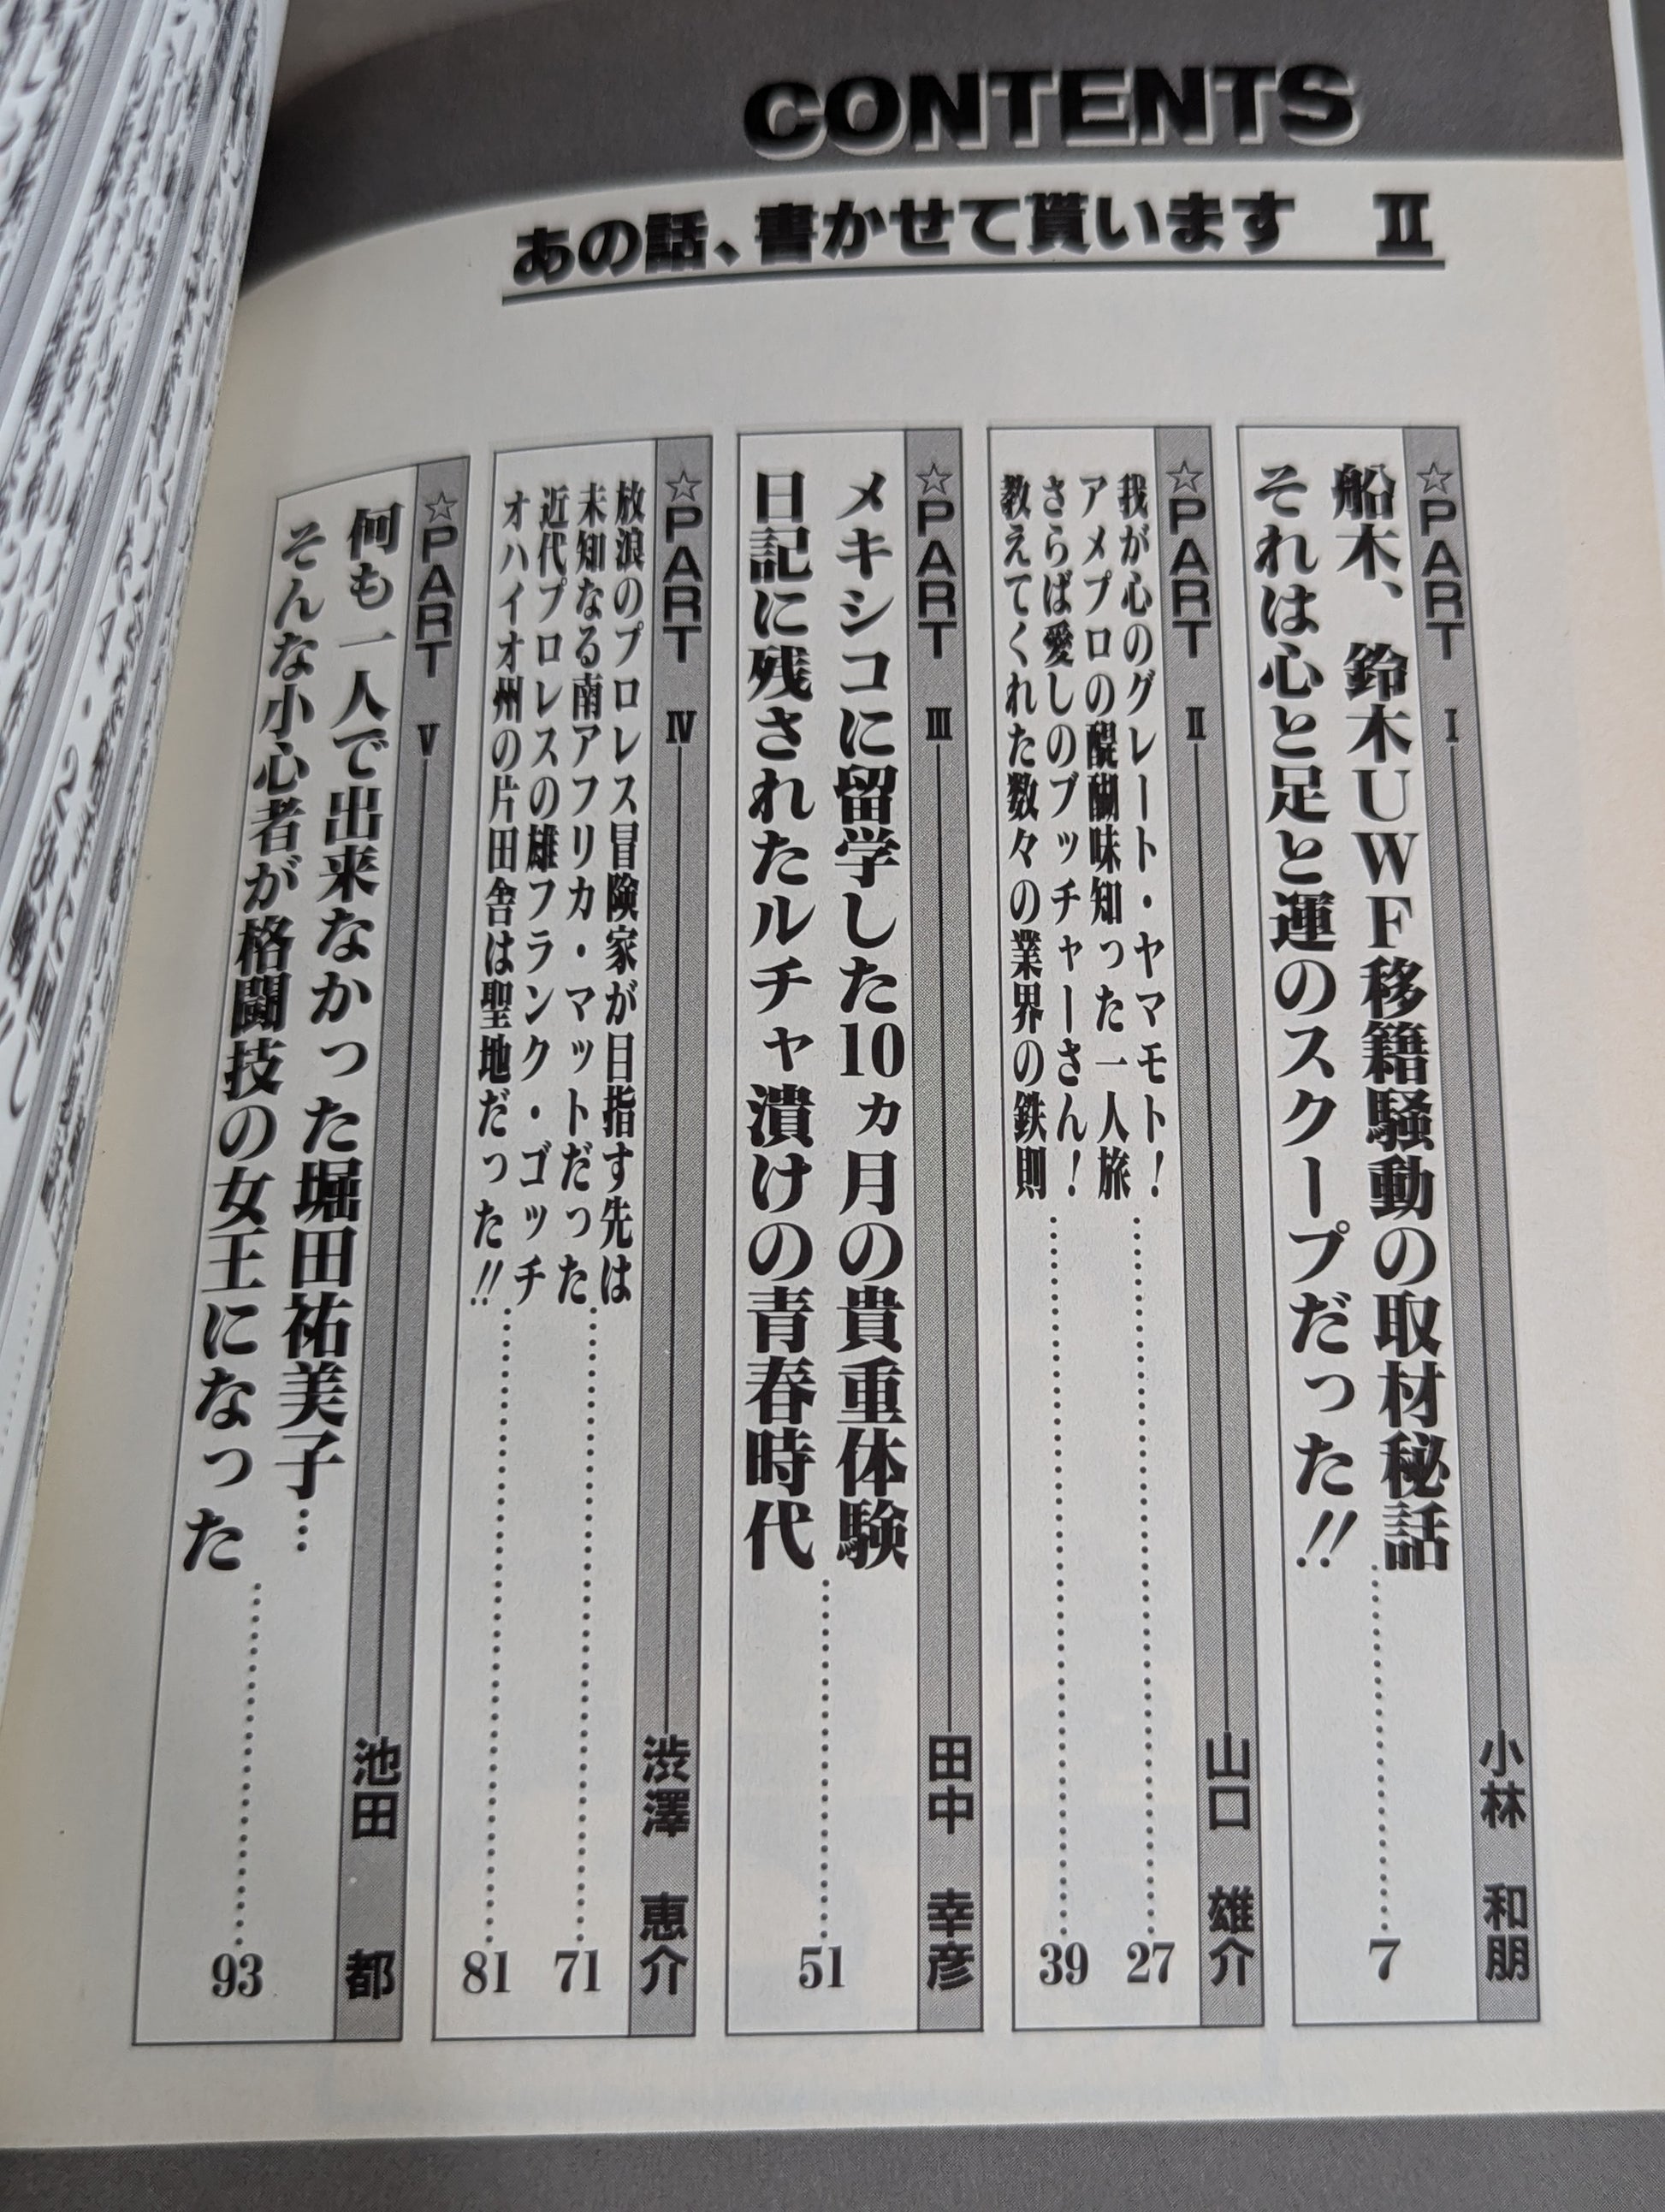 CONTENTS
あの話、書かせて貰います Ⅱ
☆PART Ⅰ 小林 和朋
船木、鈴木UWF移籍騒動の取材秘話
それは心と足と運のスクープだった!! 7
☆PART Ⅱ 山口 雄介
我が心のグレート・ヤマモト!
アメプロの醍醐味知った一人旅 27
さらば愛しのブッチャーさん!
教えてくれた数々の業界の鉄則 39
☆PART Ⅲ 田中 幸彦
メキシコに留学した10ヵ月の貴重体験
日記に残されたルチャ漬けの青春時代 51
☆PART Ⅳ 渋澤 恵介
放浪のプロレス冒険家が目指す先は
未知なる南アフリカ・マットだった 71
近代プロレスの雄フランク・ゴッチ
オハイオ州の片田舎は聖地だった!! 81
☆PART Ⅴ 池田 都
何も一人で出来なかった堀田祐美子…
そんな小心者が格闘技の女王になった 93